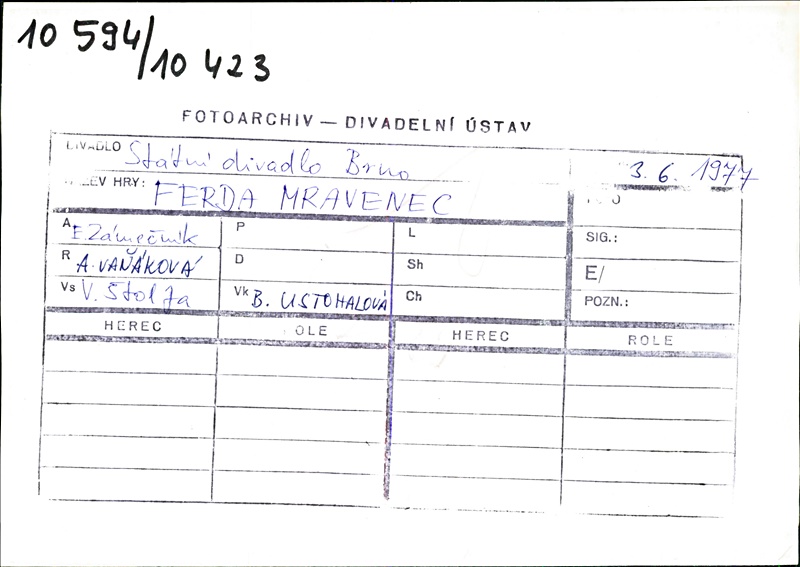 10 594/10 423
FOTOARCHIV — DIVADELNÍ ÚSTAV
DIVADLO Státní divadlo Brno 3. 6. 1977
HRY: FERDA MRAVENEC
A E. Zámečník P L SIG.:
R A. VAŇÁKOVÁ D Sh E/
Vs V. Štolfa Vk B. USTOHALOVÁ Ch POZN.:
HEREC OLE HEREC ROLE